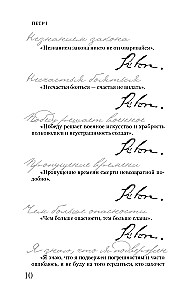 ПЕТР I
Незнанием закона
«Незнанием закона никто не отговаривайся».
Несчастья бояться
«Несчастья бояться — счастья не видать».
Победу решает военное
«Победу решает военное искусство и храбрость
полководцев и неустрашимость солдат».
Пропущение времени
«Пропущение времени смерти невозвратной по-
добно».
Чем больше опасности
«Чем больше опасности, тем больше славы».
Я знаю, что я подвержен
«Я знаю, что я подвержен погрешностям и часто
ошибаюсь, и не буду на того сердиться, кто захочет
10